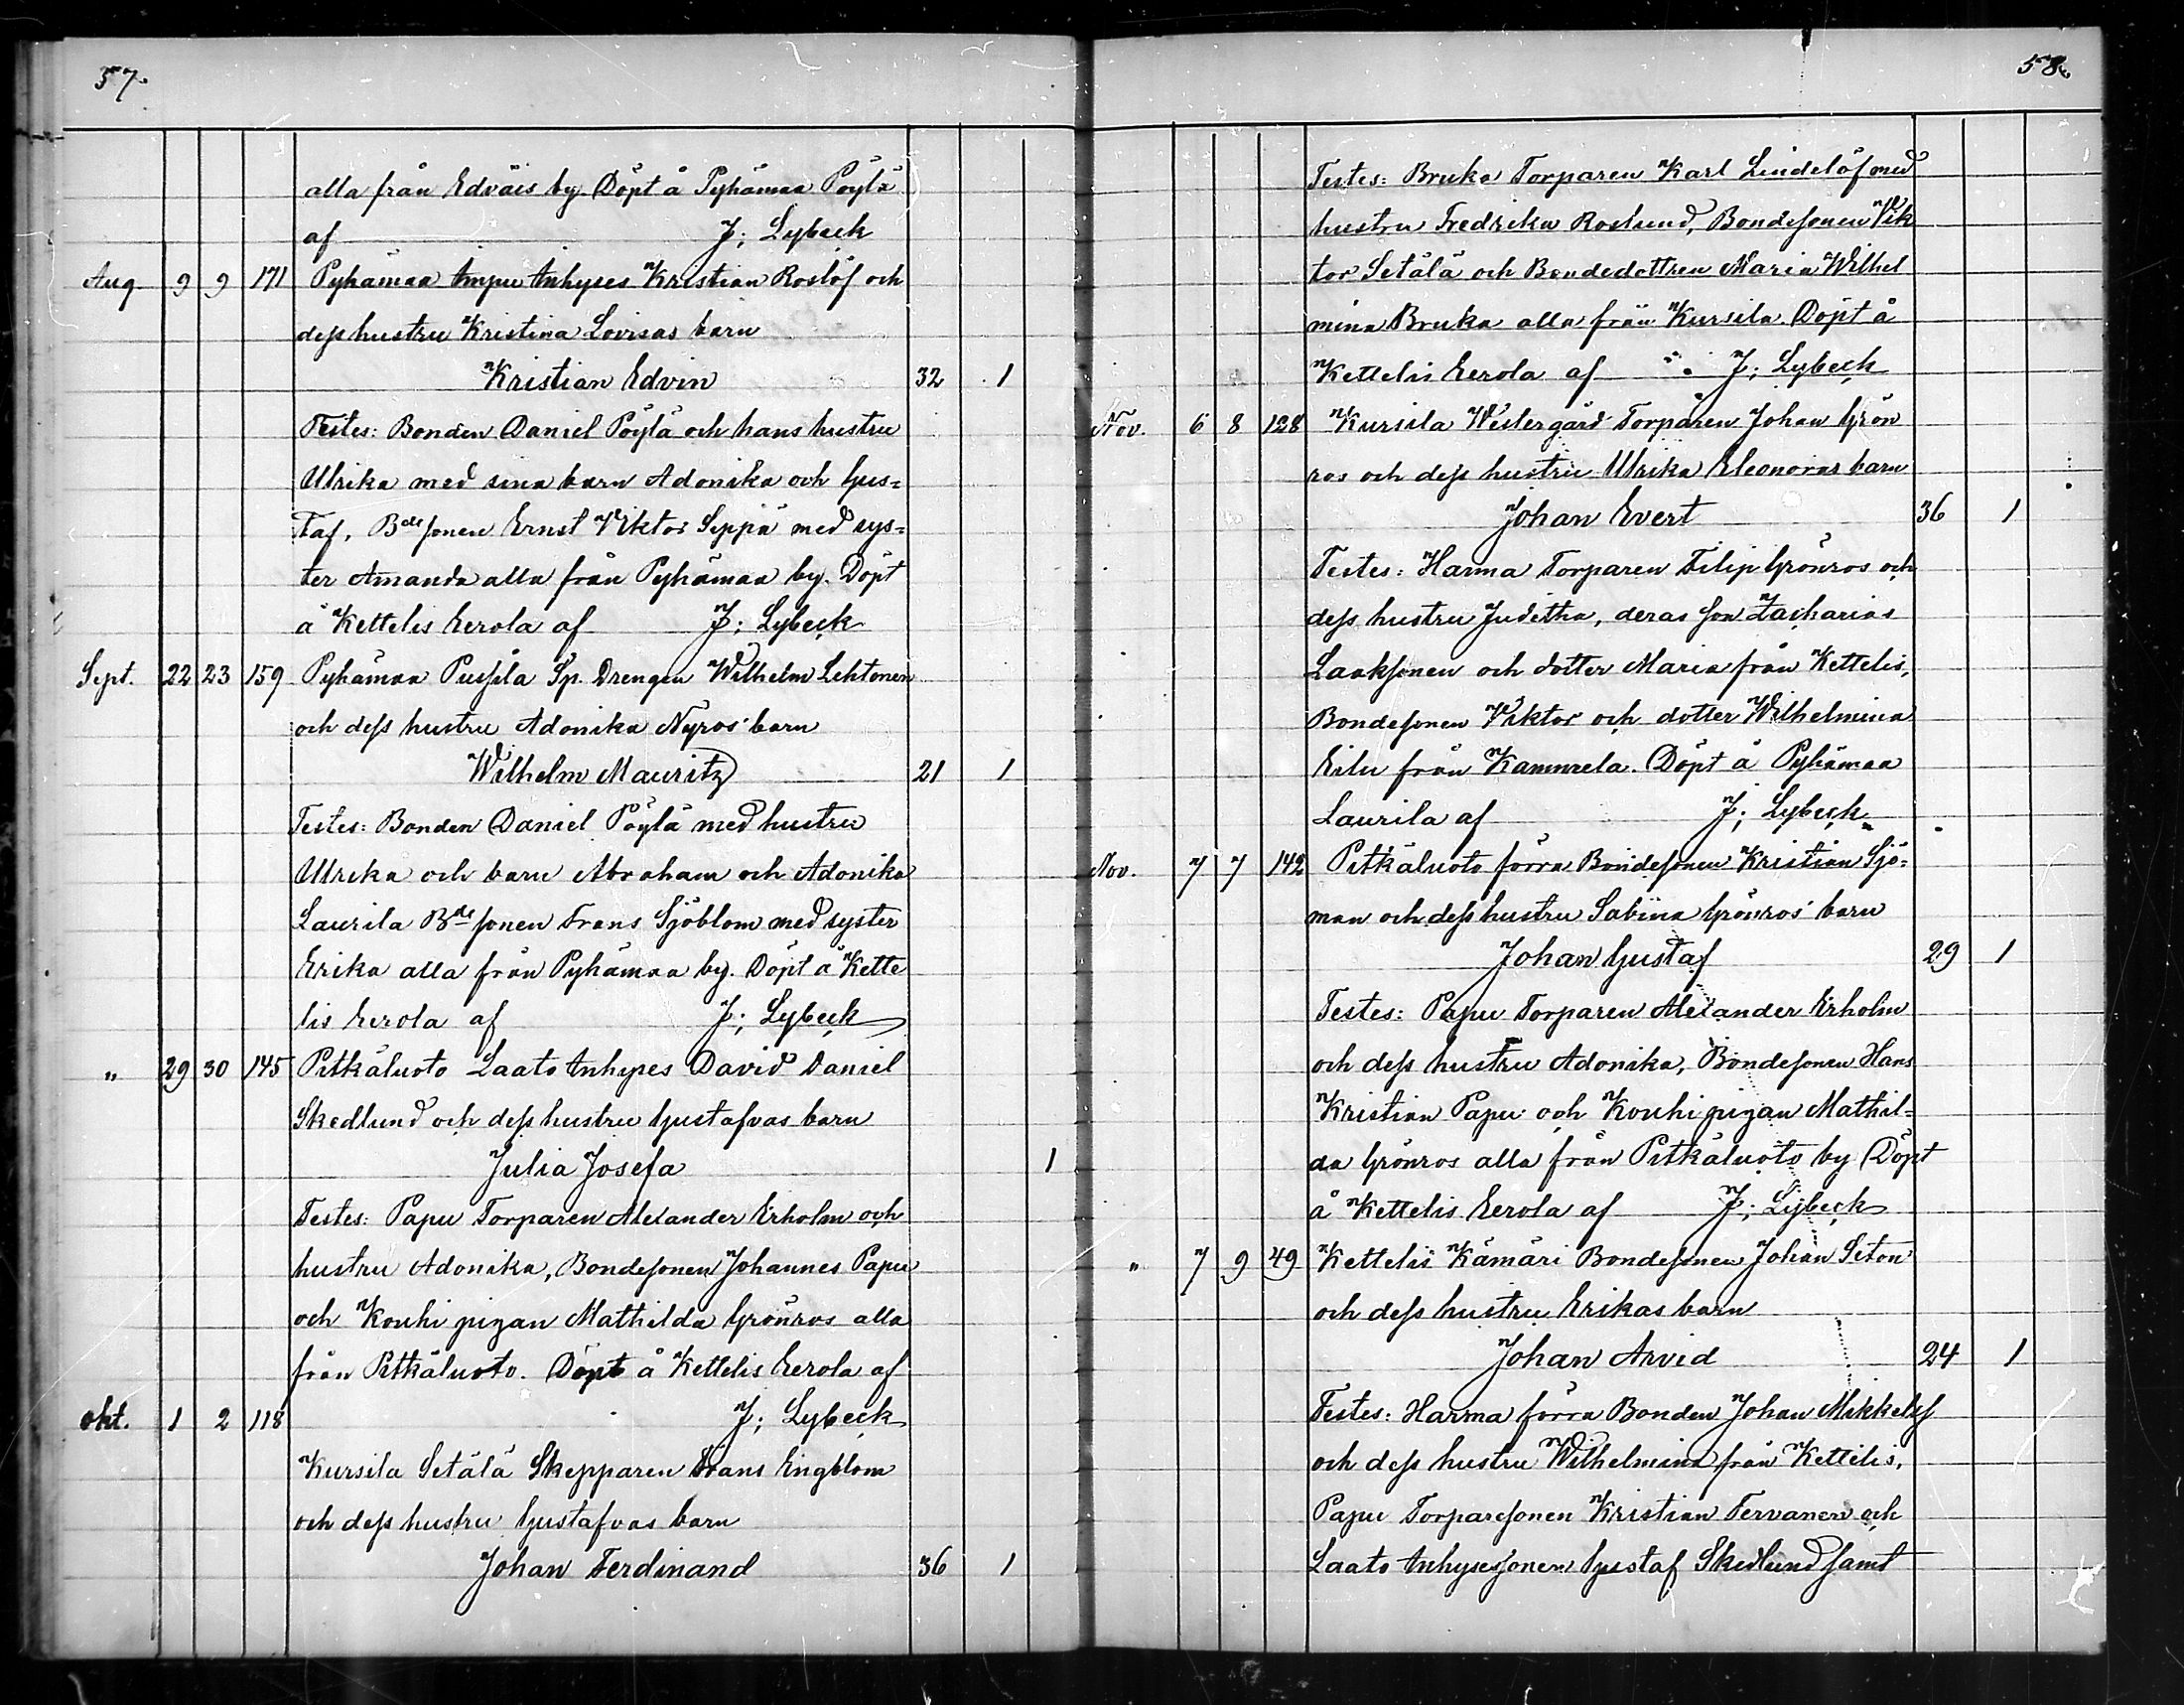 57.
alla från Edväis by. Döpt å Pyhämaa Pöylä
af J; Lybeck
Aug. 9 9 171 Pyhämaa Ampu Inhyses Kristian Roslöf och
dess hustru Kristina Lovisas barn
Kristian Edvin 32 1
Testes: Bonden Daniel Pöylä och hans hustru
Ulrika med sina barn Adonika och Gus=
taf, Bdesonen Ernst Viktor Seppä med sys=
ter Amanda alla från Pyhämaa by. Döpt
å Kettelis Eerola af J; Lybeck
Sept. 22 23 159 Pyhämaa Pussila Sp. Drengen Wilhelm Lehtonen
och dess hustru Adonika Nyros' barn
Wilhelm Mauritz 21 1
Testes: Bonden Daniel Pöylä med hustru
Ulrika och barn Abraham och Adonika
Laurila Bdesonen Frans Sjöblom med syster
Erika alla från Pyhämaa by. Döpt å Kette
lis Eerola af J; Lybeck
" 29 30 145 Pitkäluoto Laato Inhyses David Daniel
Skedlund och dess hustru Gustafvas barn
Julia Josefa 1
Testes: Papu Torparen Alexander Erholm och
hustru Adonika, Bondesonen Johannes Papu
och Kouhi pigan Mathilda Grönros alla
från Pitkäluoto. Döpt å Kettelis Eerola af
Okt. 1 2 118 J; Lybeck
Kursila Setälä Skepparen Frans Engblom
och dess hustru Gustafvas barn
Johan Ferdinand 36 1
58.
Testes: Bruka Torparen Karl Lindelöf med
hustru Fredrika Roslund, Bondesonen Vik
tor Setälä och Bondedottren Maria Wilhel
mina Bruka alla från Kursila. Döpt å
Kettelis Eerola af J; Lybeck
Nov. 6 8 128 Kursila Westergård Torparen Johan Grön
ros och dess hustru Ulrika Eleonoras barn
Johan Evert 36 1
Testes: Harma Torparen Filip Grönros och
dess hustru Juditha, deras son Zacharias
Laaksonen och dotter Maria från Kettelis,
Bondesonen Viktor och dotter Wilhelmina
Eilu från Kammela. Döpt å Pyhämaa
Laurila af J; Lybeck
Nov. 7 7 142 Pitkäluoto förra Bondesonen Kristian Sjö=
man och dess hustru Sabina Grönros' barn
Johan Gustaf 29 1
Testes: Papu Torparen Alexander Erholm
och dess hustru Adonika, Bondesonen Hans
Kristian Papu och Kouhi pigan Mathil=
da Grönros alla från Pitkäluoto by Döpt
å Kettelis Eerola af J; Lybeck
" 7 9 49 Kettelis Kämäri Bondesonen Johan Seton
och dess hustru Erikas barn
Johan Arvid 24 1
Testes: Harma förra Bonden Johan Mikkelss
och dess hustru Wilhelmina från Kettelis,
Papu Torparesonen Kristian Tervanen och
Laato Inhysesonen Gustaf Skedlund samt